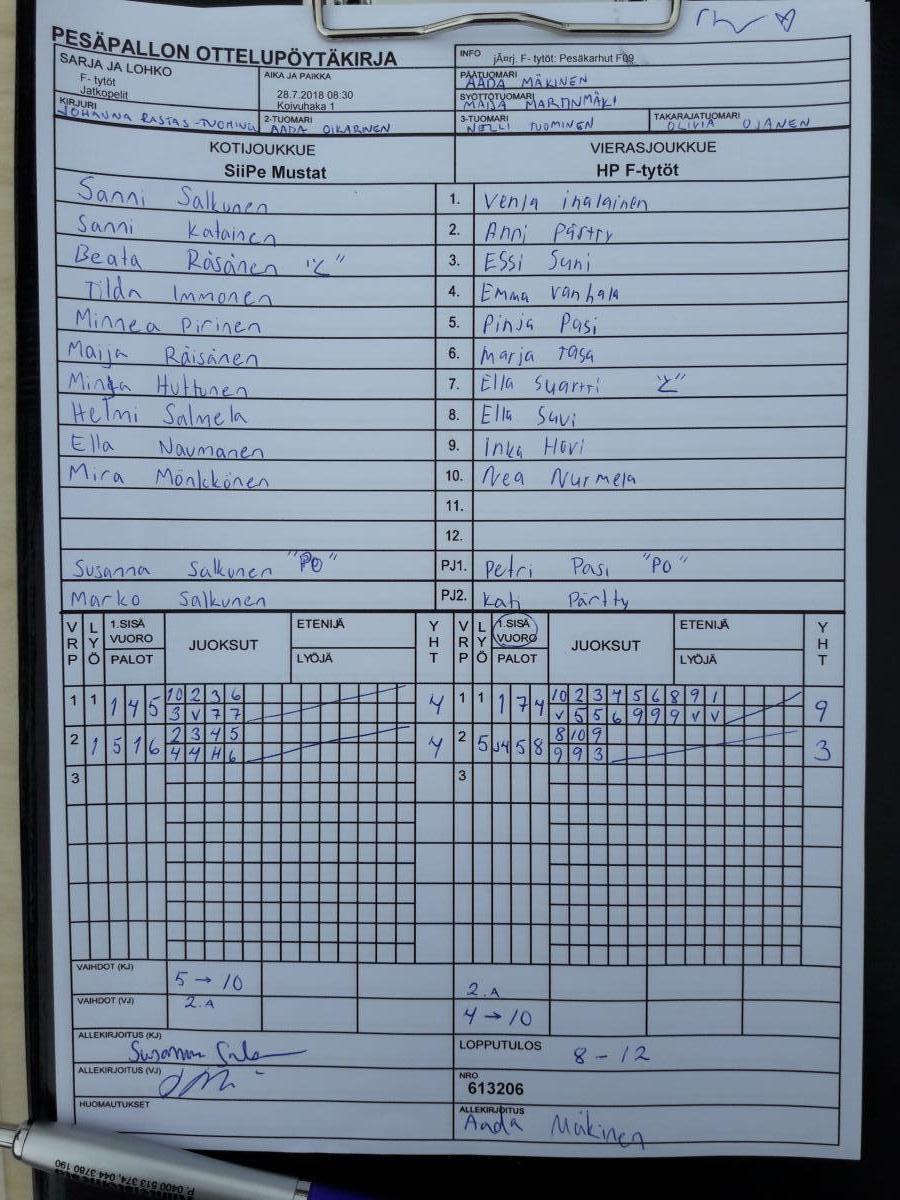 PESÄPALLON OTTELUPÖYTÄKIRJA
SARJA JA LOHKO
F- tytöt
Jatkopelit
AIKA JA PAIKKA
28.7.2018 08:30
Koivuhaka 1
INFO jÃ¤rj. F- tytöt: Pesäkarhut F09
PÄÄTUOMARI
AADA MÄKINEN
SYÖTTÖTUOMARI
MAIJA MARTINMÄKI
KIRJURI
JOHANNA RASTAS-TUOMINEN
2-TUOMARI
AADA OIKARINEN
3-TUOMARI
NELLI TUOMINEN
TAKARAJATUOMARI
OLIVIA OJANEN
KOTIJOUKKUE VIERASJOUKKUE
SiiPe Mustat HP F-tytöt
Sanni Salkunen 1. Venla ihalainen
Sanni Katainen 2. Anni Pärtty
Beata Räsänen "L" 3. Essi Suni
Tilda Immonen 4. Emma vanhala
Minnea Pirinen 5. Pinja Pasi
Maija Räisänen 6. Marja rasa
Minja Huttunen 7. Ella Suartti "L"
Helmi Salmela 8. Ella Savi
Ella Naumanen 9. inka Hovi
Mira Mönkkönen 10. Nea Nurmela
11.
12.
Susanna Salkunen "PO" PJ1. Petri Pasi "PO"
Marko Salkunen PJ2. Kati Pärtty
VRP LYÖ 1.SISÄ VUORO PALOT JUOKSUT ETENIJÄ LYÖJÄ YHT VRP LYÖ 1.SISÄ VUORO PALOT JUOKSUT ETENIJÄ LYÖJÄ YHT
1 1 1 4 5 10 2 3 6 4 1 1 1 7 4 10 2 3 4 5 6 8 9 1 9
3 V 7 7 V 5 5 6 9 9 9 V V
2 1 5 1 6 2 3 4 5 4 2 5 4 5 8 8 10 9 3
4 4 4 6 9 9 3
3 3
VAIHDOT (KJ) 5 → 10 2.A
VAIHDOT (VJ) 2.A 4 → 10
ALLEKIRJOITUS (KJ) LOPPUTULOS 8 - 12
ALLEKIRJOITUS (VJ) NRO
613206
HUOMAUTUKSET ALLEKIRJOITUS
Aada Mäkinen
P. 0400 513 374, 044 3780 190